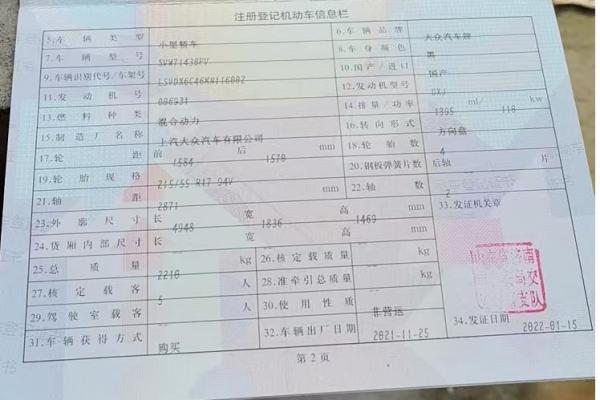 注册登记机动车信息栏
5.车辆类型 小型轿车 6.车辆品牌 大众汽车牌
7.车辆型号 SVW71438PV 8.车身颜色 黑
9.车辆识别代号/车架号 LSVDX6C46KN116002 10.国产/进口 国产
11.发动机号 006934 12.发动机型号 DXJ
13.燃料种类 混合动力 14.排量/功率 1395 ml/ 110 kw
15.制造厂名称 上汽大众汽车有限公司 16.转向形式 方向盘
17.轮距 前 1584 后 1570 mm 18.轮胎数 4
19.轮胎规格 215/55 R17 94V 20.钢板弹簧片数 后轴 片
21.轴距 2871 mm 22.轴数 2
23.外廓尺寸 长 4948 宽 1836 高 1469 mm 33.发证机关章
24.货厢内部尺寸 长 宽 高 mm
25.总质量 2210 kg 26.核定载质量 kg
27.核定载客 5 人 28.准牵引总质量 kg
29.驾驶室载客 人 30.使用性质 非营运
31.车辆获得方式 购买 32.车辆出厂日期 2021-11-25 34.发证日期 2022-01-15
第2页